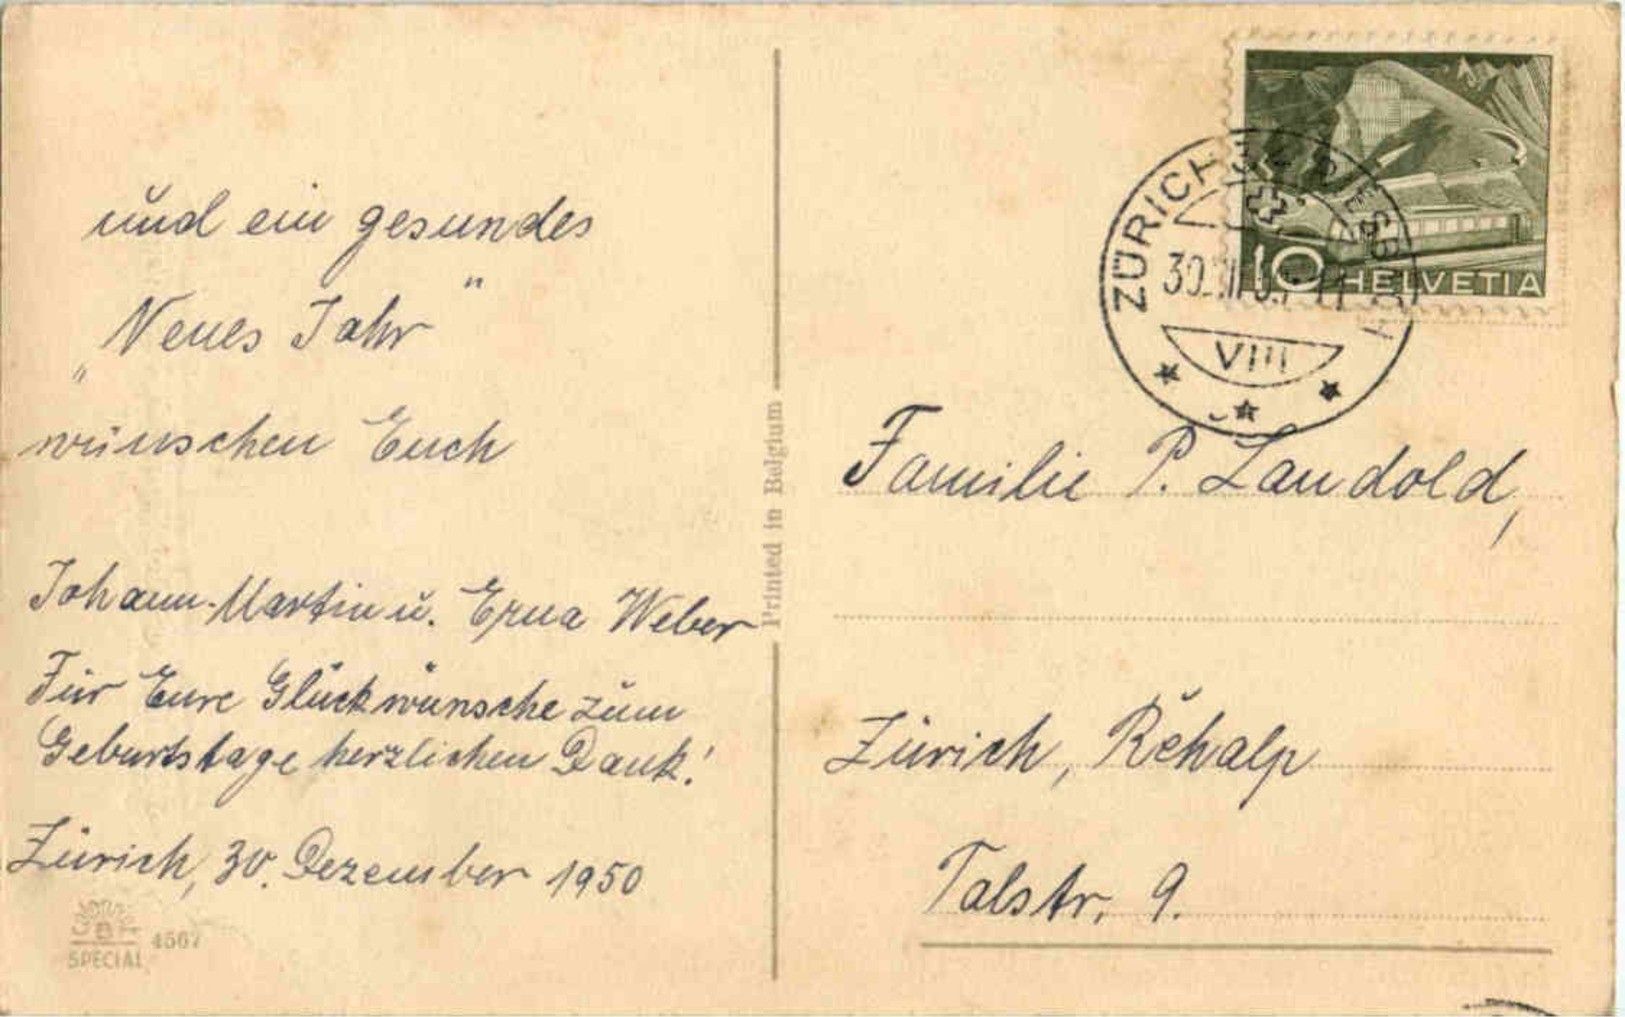 und ein gesundes
„Neues Jahr"
wünschen Euch
Johann-Martin u. Erna Weber
Für Eure Glückwünsche zum
Geburtstage herzlichen Dank!
Zürich, 30. Dezember 1950
B
SPECIAL
4567
Printed in Belgium
10 HELVETIA
ZÜRICH
VIII
Familie P. Landold,
Zürich, Rehalp
Talstr. 9.